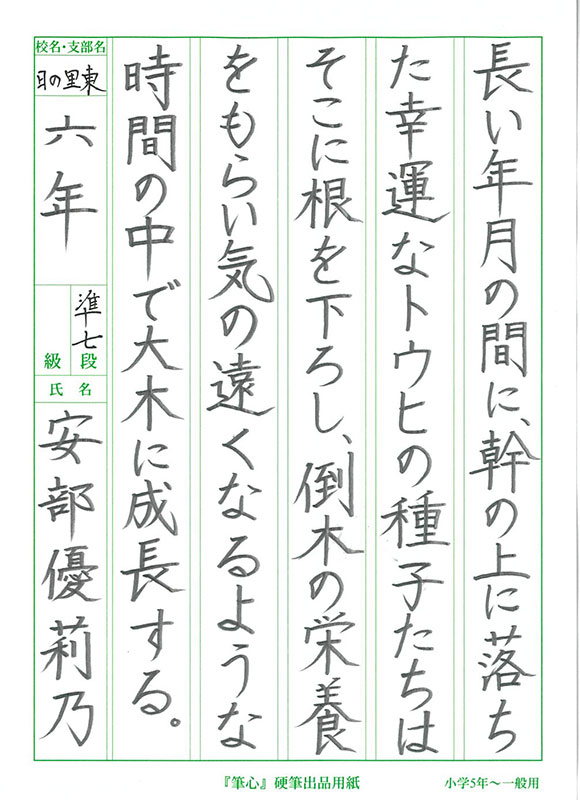 長い年月の間に、幹の上に落ち
た幸運なトウヒの種子たちは
そこに根を下ろし、倒木の栄養
をもらい気の遠くなるような
時間の中で大木に成長する。
校名・支部名
日の里東
六年
準七
段
級
氏名
安部優莉乃
『筆心』硬筆出品用紙
小学5年〜一般用